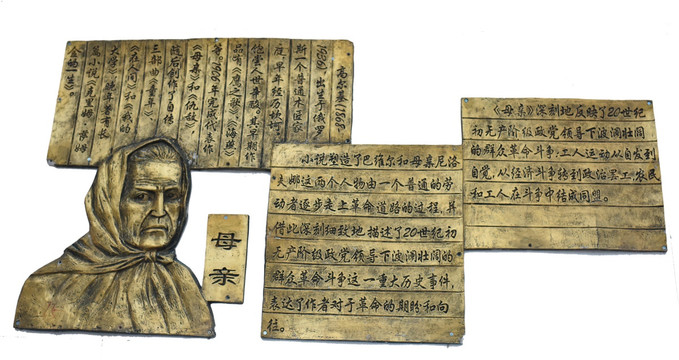 高尔基(1868-
1936) 出生于俄罗
斯一个普通木匠家
庭,早年经历坎坷,
饱尝人世辛酸,其早期作
品有《鹰之歌》《海燕》
等。1906年完成代表作
《母亲》和《仇敌》
随后创作了自传
三部曲《童年》
《在人间》和《我的
大学》,晚年著有长
篇小说《克里姆·萨姆
金的一生》。
母亲
小说塑造了巴维尔和母亲尼洛
夫娜这两个人物由一个普通的劳
动者逐步走上革命道路的过程,并
借此深刻细致地描述了20世纪初
无产阶级政党领导下波澜壮阔的
群众革命斗争这一重大历史事件,
表达了作者对于革命的期盼和向
往。
《母亲》深刻地反映了20世纪
初无产阶级政党领导下波澜壮阔
的群众革命斗争:工人运动从自发到
自觉,从经济斗争转到政治罢工,农民
和工人在斗争中结成同盟。